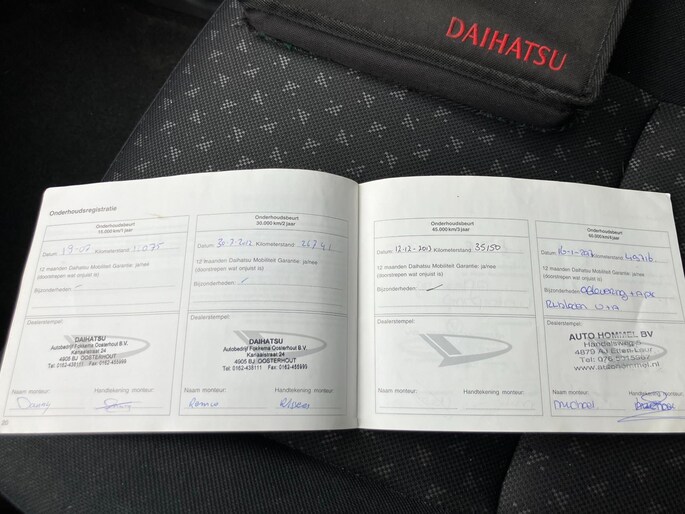 DAIHATSU
Onderhoudsregistratie
Onderhoudsbeurt
15.000 km/1 jaar
Datum: Kilometerstand:
12 maanden Daihatsu Mobiliteit Garantie ja/nee
(doorstrepen wat onjuist is)
Bijzonderheden:
Dealerstempel:
DAIHATSU
Autobedrijf Fokkema Oosterhout B.V.
Kanaalstraat 24
4905 BJ OOSTERHOUT
Naam monteur: Handtekening monteur:
Danny
Onderhoudsbeurt
30.000 km/2 jaar
Datum: 30-7-2012 Kilometerstand:
12 maanden Daihatsu Mobiliteit Garantie ja/nee
(doorstrepen wat onjuist is)
Bijzonderheden:
Dealerstempel:
DAIHATSU
Autobedrijf Fokkema Oosterhout B.V.
Kanaalstraat 24
4905 BJ OOSTERHOUT
Naam monteur: Handtekening monteur:
Onderhoudsbeurt
45.000 km/3 jaar
Datum: 12-12-2013 Kilometerstand: 35150
12 maanden Daihatsu Mobiliteit Garantie ja/nee
(doorstrepen wat onjuist is)
Bijzonderheden:
Dealerstempel:
Naam monteur: Handtekening monteur:
Onderhoudsbeurt
60.000 km/4 jaar
Datum: Kilometerstand:
12 maanden Daihatsu Mobiliteit Garantie ja/nee
(doorstrepen wat onjuist is)
Bijzonderheden: Aflevering + APK
Dealerstempel:
AUTO HOMMEL BV
Handelsweg
4879 AJ Etten-Leur
www.autohommel.nl
Naam monteur: Handtekening monteur:
michael